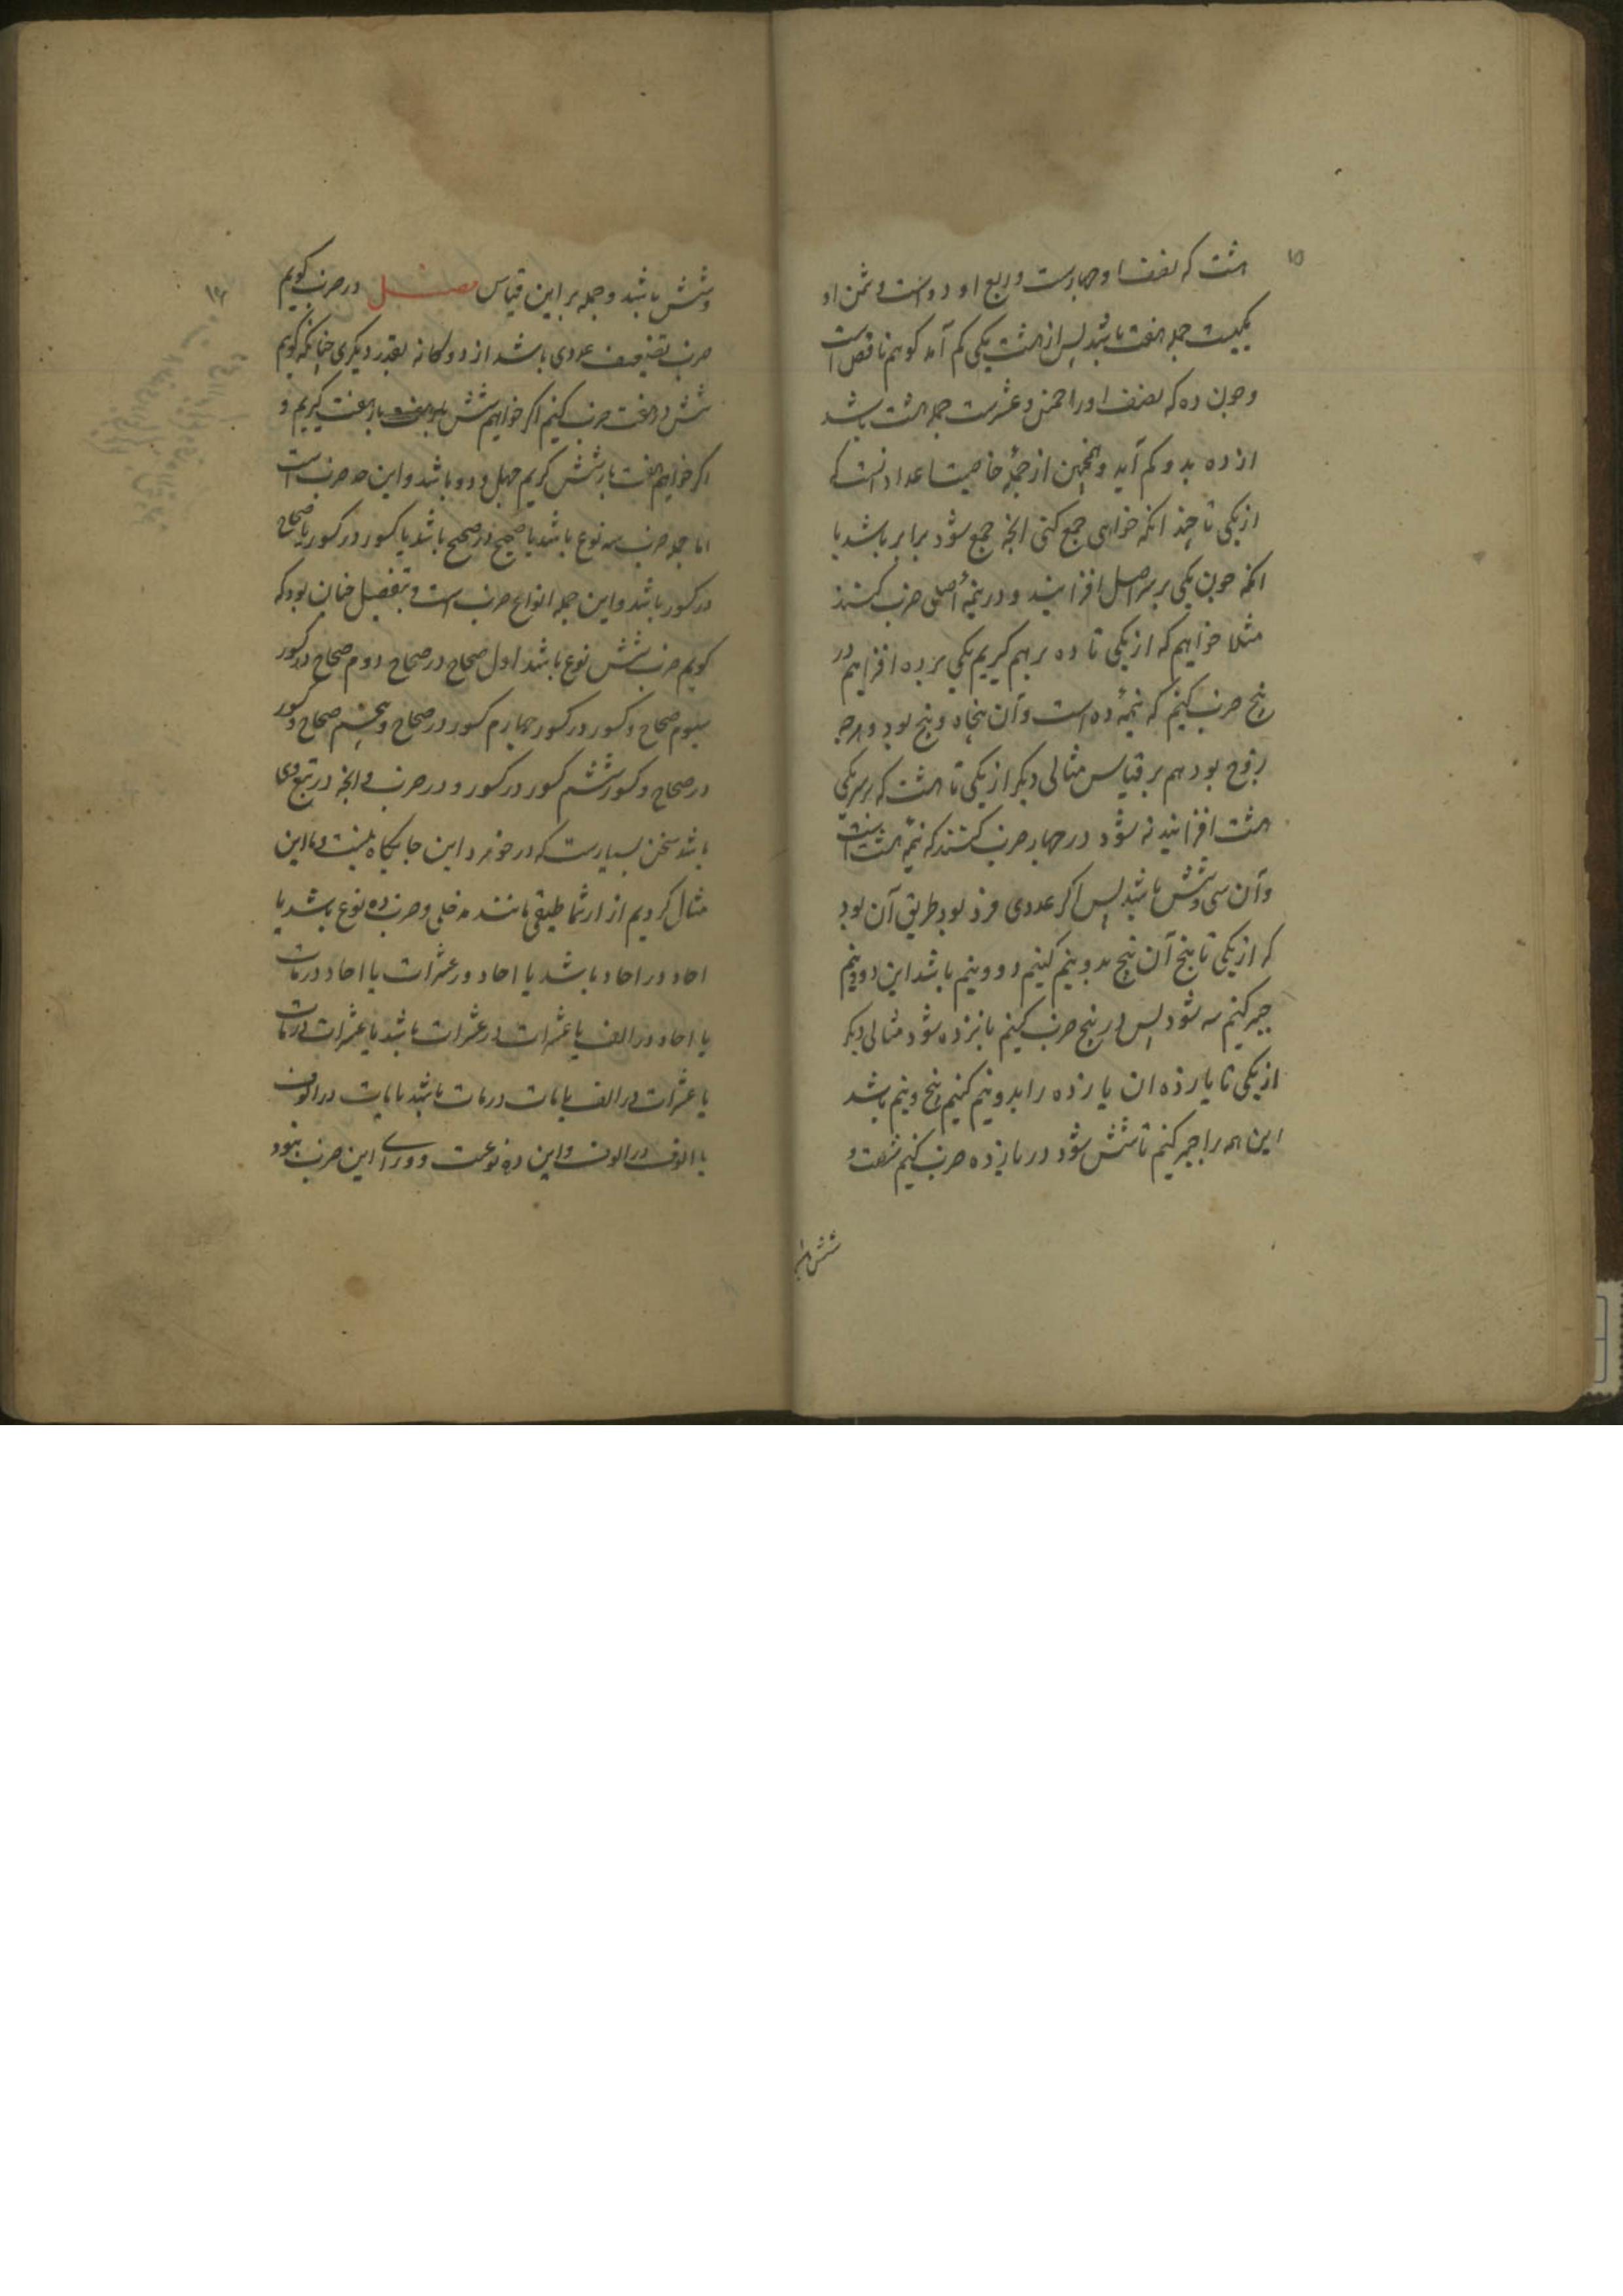 ۱۵
هشت که نصف او چهارست و ربع او دو است و ثمن او
یکیست جمله هفت باشد پس از هشت یکی کم آمد کوهم ناقص است
و چون ده که نصف او را خمس و عشرست جمله هشت باشد
از ده بدو کم آید و همچنین از جملهٔ خاصیت اعداد آنست که
از یکی تا چند انکه خواهی جمع کنی انچه جمع شود برابر باشد با
انکه چون یکی بر سر اصل افزایند و در نیمهٔ اصلی ضرب کنند
مثلا خواهیم که از یکی تا ده بر هم کیریم یکی بر ده افزاییم در
پنج ضرب کنیم که نیمهٔ ده است و آن پنجاه و پنج بود و هرچه
زوج بود هم بر قیاس مثالی دیکر از یکی تا هشت که بر سر یکی
هشت افزایند نه شود در چهار ضرب کنند که نیمهٔ هشت است
و آن سی و شش باشد پس اکر عددی فرد بود طریق آن بود
که از یکی تا پنج آن پنج بدو نیم کنیم دو و نیم باشد این دو و نیم
جبر کنیم سه شود پس در پنج ضرب کنیم پانزده شود مثالی دیکر
از یکی تا یازده ان یازده را بدو نیم کنیم پنج و نیم باشد
این همه را جبر کنیم تا شش شود در یازده ضرب کنیم شصت و
شش باشد
۱۶
و شش باشد و جمله بر این قیاس فصل در ضرب کویم
ضرب تضعیف عددی باشد از دوکانه بقدر دیکری چنانکه کویم
شش در هفت ضرب کنیم اکر خواهیم شش بار هفت کیریم و
اکر خواهیم هفت بار شش کیریم چهل و دو باشد و این حد ضرب است
اما جمله ضرب سه نوع باشد یا صحیح در صحیح باشد یا کسور در کسور یا صحاح
در کسور باشد و این جمله انواع ضرب است و بتفصیل چنان بود که
کویم ضرب شش نوع باشد اول صحاح در صحاح دوم صحاح در کسور
سیوم صحاح و کسور در کسور چهارم کسور در صحاح و پنجم صحاح و کسور
در صحاح و کسور ششم کسور در کسور و در ضرب و انچه در تبع وی
باشد سخن بسیارست که در خورد این جایکاه نیست و ما این
مثال کردیم از ارثماطیقی مانند مدخلی و ضرب ده نوع باشد یا
احاد در احاد باشد یا احاد در عشرات یا احاد در مات
یا احاد در الف یا عشرات در عشرات باشد یا عشرات در مات
یا عشرات در الف یا مات در مات باشد یا مایت در الوف
یا الوف در الوف و این ده نوعست و ورای این ضرب نبود